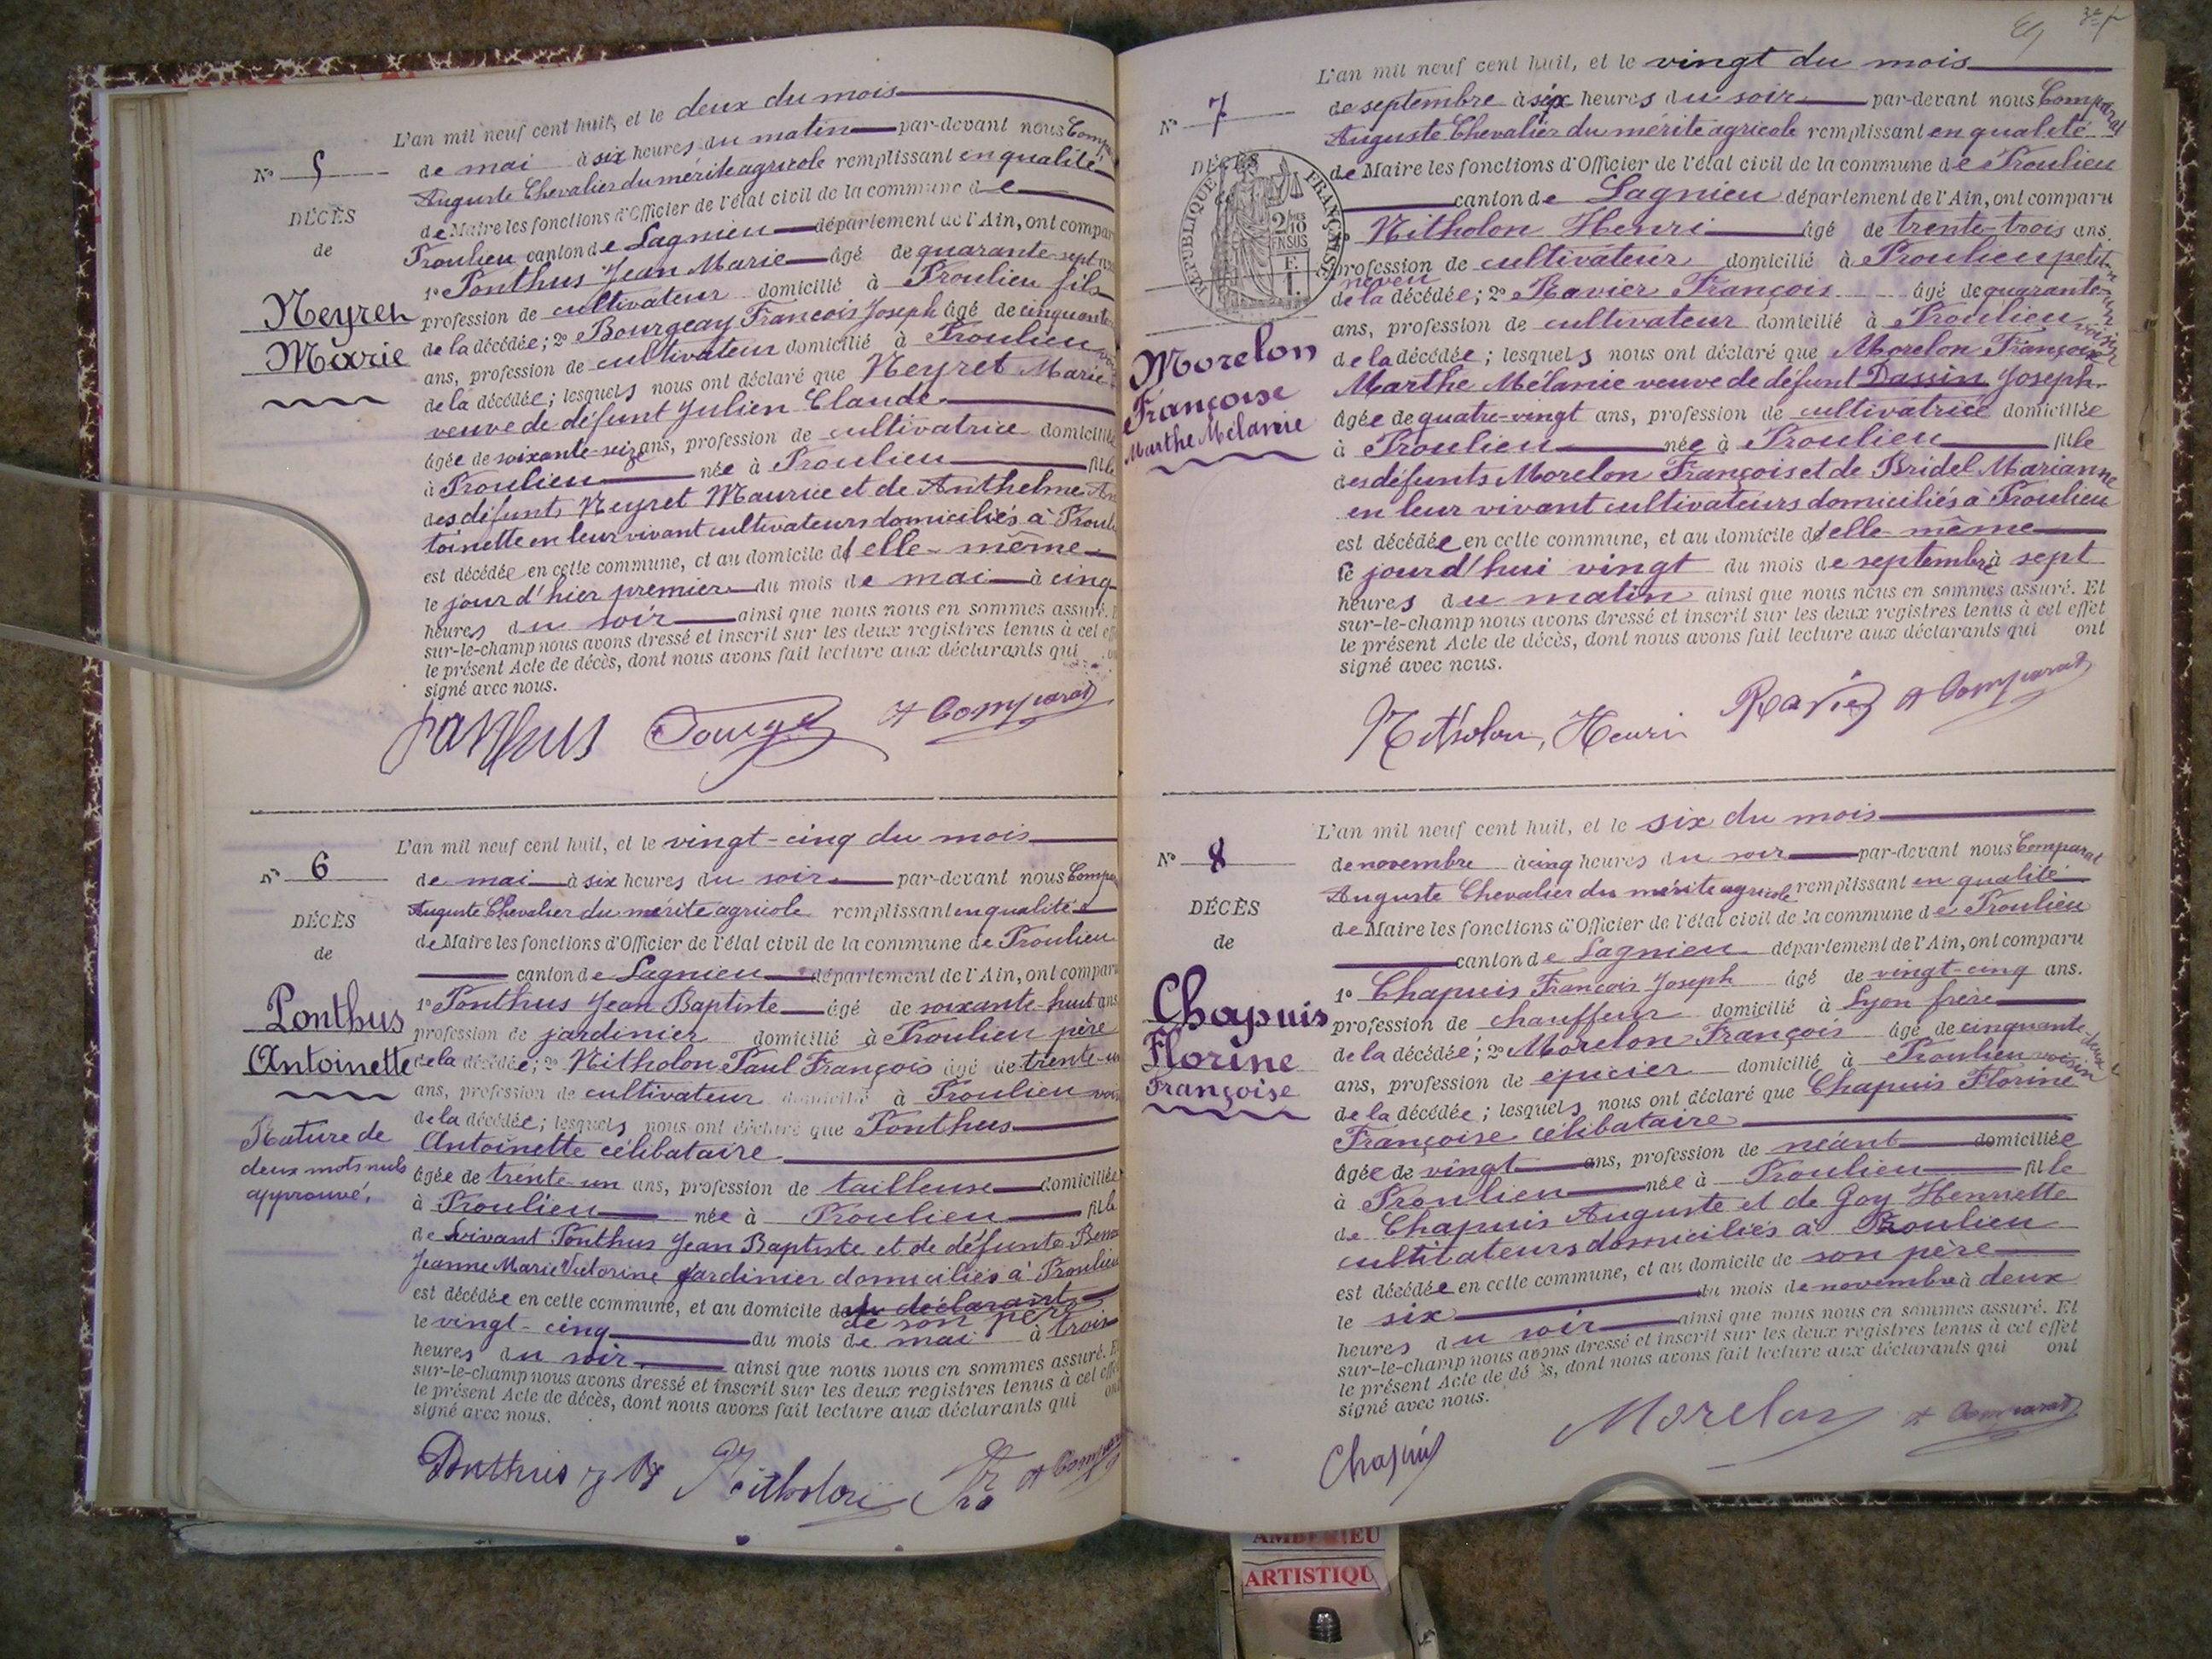 L'an mil neuf cent huit, et le deux du mois
N° 5
de mai à six heures du matin par-devant nous
Auguste Chevalier du mérite agricole remplissant en qualité
de Maire les fonctions d'Officier de l'état civil de la commune de
Proulieu canton de Lagnieu département de l'Ain, ont
1° Ponthus Jean Marie âgé de quarante-sept
profession de cultivateur domicilié à Proulieu fils
de la décédée; 2° Bourgeay François Joseph âgé de cinquante
ans, profession de cultivateur domicilié à Proulieu
de la décédée; lesquels nous ont déclaré que Neyret Marie
veuve de défunt Julien Claude
âgée de soixante-seize ans, profession de cultivatrice domiciliée
à Proulieu née à Proulieu fille
des défunts Neyret Maurice et de Anthelme An
toinette en leur vivant cultivateurs domiciliés à
est décédée en cette commune, et au domicile d'elle-même
le jour d'hier premier du mois de mai à cinq
heures du soir ainsi que nous nous en sommes assuré.
sur-le-champ nous avons dressé et inscrit sur les deux registres tenus à cet
le présent Acte de décès, dont nous avons fait lecture aux déclarants qui
signé avec nous.
DÉCÈS
de
Neyret
Marie
Ponthus A Comparat
L'an mil neuf cent huit, et le vingt-cinq du mois
N° 6
de mai à six heures du soir par-devant nous
Auguste Chevalier du mérite agricole remplissant en qualité
de Maire les fonctions d'Officier de l'état civil de la commune de Proulieu
canton de Lagnieu département de l'Ain, ont comparu
1° Ponthus Jean Baptiste âgé de soixante-huit ans
profession de jardinier domicilié à Proulieu père
de la décédée; 2° Nitholon Paul François âgé de
ans, profession de cultivateur domicilié à Proulieu
de la décédée; lesquels nous ont déclaré que Ponthus
Antoinette célibataire
âgée de trente-un ans, profession de tailleuse domiciliée
à Proulieu née à Proulieu fille
de vivant Ponthus Jean Baptiste et de défunte
Jeanne Marie Victorine jardinier domiciliés à Proulieu
est décédée en cette commune, et au domicile de déclarant
de son père
le vingt-cinq du mois de mai à trois
heures du soir ainsi que nous nous en sommes assuré. Et
sur-le-champ nous avons dressé et inscrit sur les deux registres tenus à cet
le présent Acte de décès, dont nous avons fait lecture aux déclarants qui
signé avec nous.
DÉCÈS
de
Ponthus
Antoinette
Rature de
deux mots nuls
approuvé.
Ponthus Nitholon A
L'an mil neuf cent huit, et le vingt du mois
N° 7
de septembre à six heures du soir par-devant nous Comparat
Auguste Chevalier du mérite agricole remplissant en qualité
de Maire les fonctions d'Officier de l'état civil de la commune de Proulieu
canton de Lagnieu département de l'Ain, ont comparu
Nitholon Henri âgé de trente-trois ans.
profession de cultivateur domicilié à Proulieu petit-
neveu
de la décédée; 2° Ravier François âgé de quarante-
ans, profession de cultivateur domicilié à Proulieu voisin
de la décédée; lesquels nous ont déclaré que Morelon Françoise
Marthe Mélanie veuve de défunt Dassin Joseph
âgée de quatre-vingt ans, profession de cultivatrice domiciliée
à Proulieu née à Proulieu fille
des défunts Morelon François et de Bridel Marianne
en leur vivant cultivateurs domiciliés à Proulieu
est décédée en cette commune, et au domicile d'elle-même
le jourd'hui vingt du mois de septembre à sept
heures du matin ainsi que nous nous en sommes assuré. Et
sur-le-champ nous avons dressé et inscrit sur les deux registres tenus à cet effet
le présent Acte de décès, dont nous avons fait lecture aux déclarants qui ont
signé avec nous.
DÉCÈS
RÉPUBLIQUE FRANÇAISE
Morelon
Françoise
Marthe Mélanie
Nitholon, Henri Ravier A Comparat
L'an mil neuf cent huit, et le six du mois
N° 8
de novembre à cinq heures du soir par-devant nous Comparat
Auguste Chevalier du mérite agricole remplissant en qualité
de Maire les fonctions d'Officier de l'état civil de la commune de Proulieu
canton de Lagnieu département de l'Ain, ont comparu
1° Chapuis François Joseph âgé de vingt-cinq ans.
profession de chauffeur domicilié à Lyon frère
de la décédée; 2° Morelon François âgé de cinquante-deux
ans, profession de épicier domicilié à Proulieu voisin
de la décédée; lesquels nous ont déclaré que Chapuis Florine
Françoise célibataire
âgée de vingt ans, profession de néant domiciliée
à Proulieu née à Proulieu fille
de Chapuis Auguste et de Goy Henriette
cultivateurs domiciliés à Proulieu
est décédée en cette commune, et au domicile de son père
le six du mois de novembre à deux
heures du soir ainsi que nous nous en sommes assuré. Et
sur-le-champ nous avons dressé et inscrit sur les deux registres tenus à cet effet
le présent Acte de décès, dont nous avons fait lecture aux déclarants qui ont
signé avec nous.
DÉCÈS
de
Chapuis
Florine
Françoise
Chapuis Morelon A Comparat
ARTISTIQU